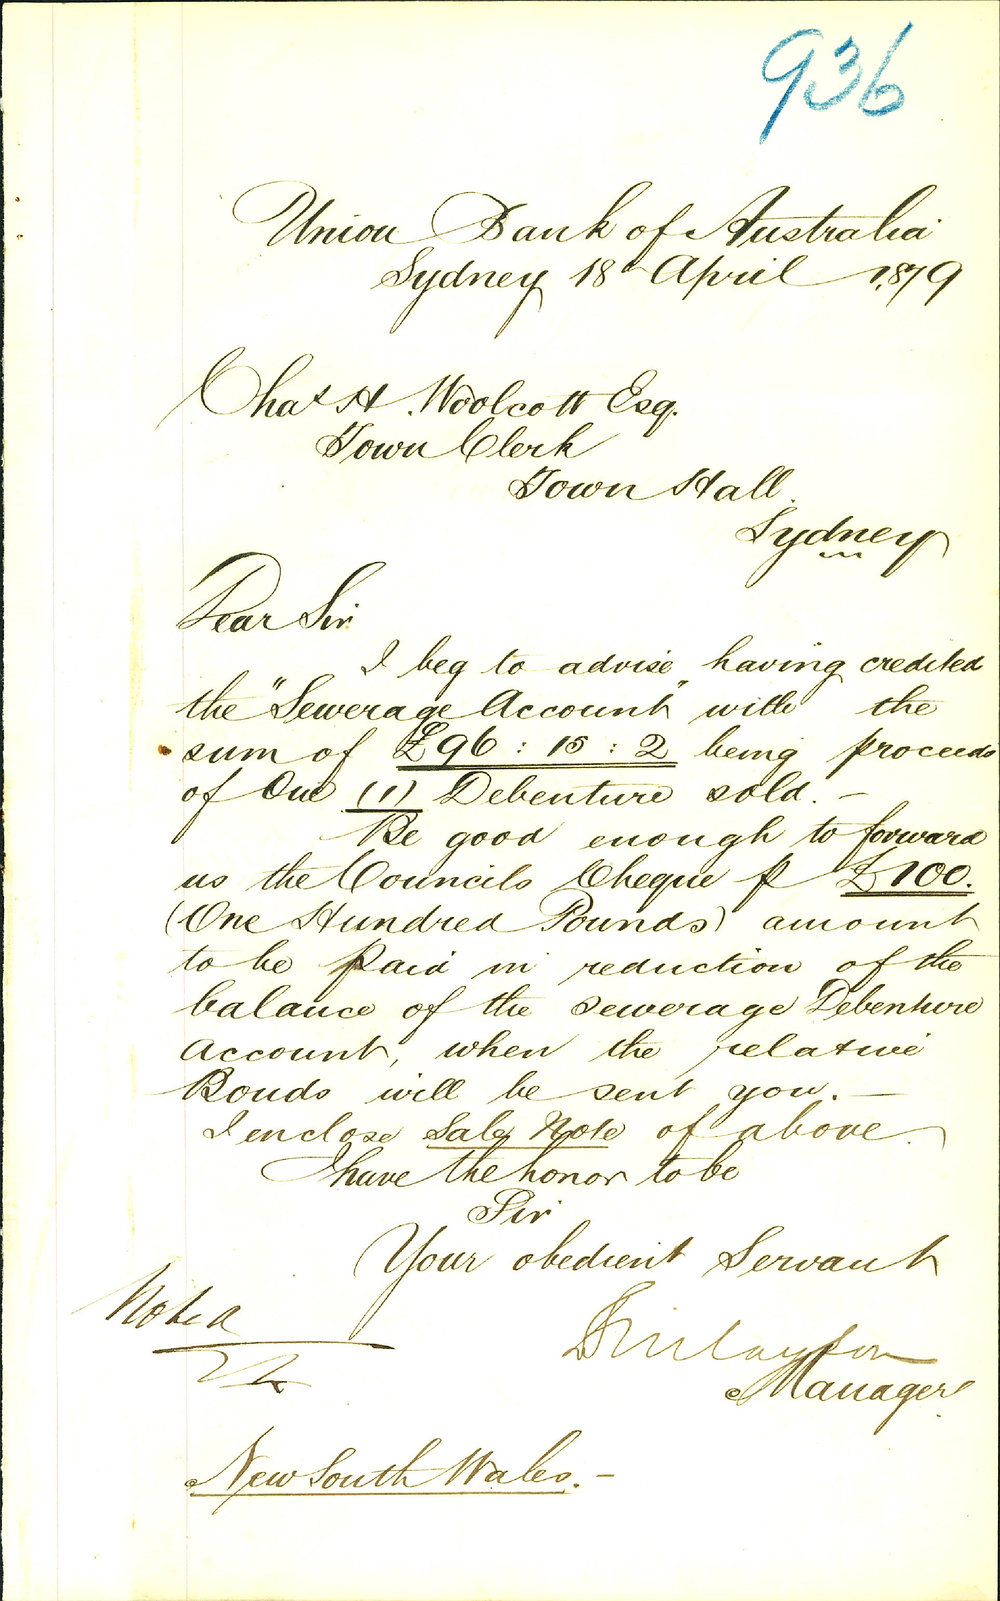 936
Union Bank of Australia
Sydney 18th April 1879
Chas H. Woolcott Esq.
Town Clerk
Town Hall.
Sydney
Dear Sir
I beg to advise having credited
the "Sewerage Account" with the
sum of £96 : 15 : 2 being proceeds
of One (1) Debenture sold. —
Be good enough to forward
us the Councils Cheque p £100.
(One Hundred Pounds) amount
to be paid in reduction of the
balance of the Sewerage Debenture
Account, when the relative
Bonds will be sent you. —
I enclose Sale Note of above.
I have the honor to be
Sir
Your obedient Servant
Noted
Finlayson
Manager
New South Wales. —